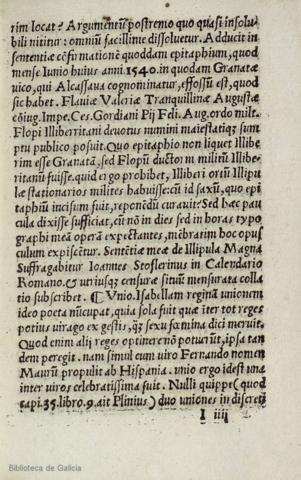 rim locat? Argumentũ postremo quo quasi insolu
bili nititur: omniũ facillime dissoluetur. Adducit in
sententiæ cõfirmationẽ quoddam epitaphium, quod
mense Iunio huius anni 1540. in quodam Granatæ
vico, qui Alcassaua cognominatur, effossũ est, quod
sic habet. Flauiæ Valeriæ Tranquillinæ Augustæ
cõiug. Impe. Ces. Gordiani Pij Feli. Aug. ordo milt.
Flopi Illiberitani deuotus numini maiestatiqʒ sum
ptu publico posuit. Quo epitaphio non liquet Illibe
rim esse Granatã, sed Flopũ ductorẽ militũ Illibe
ritanũ fuisse. quid ergo prohibet, Illiberi oriũ Illipu
læ stationarios milites habuisse: cũ id saxũ, quo epi
taphiũ incisum fuit, repondẽdũ curauit? Sed hæc pau
cula dixisse sufficiat, cũ nõ in dies sed in horas typo
graphi meã operã expectantes, mẽbratim hoc opus
culum expiscẽtur. Sentẽtiæ meæ de Illipula Magna
Suffragabitur Ioannes Stoflerinus in Calendario
Romano. & vriusqʒ censuræ sitũs mensurata colla
tio subscribet. ¶ Vnio. Isabellam reginã unionem
ideo poeta nũcupat, quia sola fuit quæ iter tot reges
potius virago ex gestis, qʒ sexu fœmina dici meruit.
Quod enim alij reges optinere nõ potuerũt, ipsa tan
dem peregit. nam simul cum viro Fernando nomen
Maurũ propulit ab Hispania. unio ergo idest una
inter viros celebratissima fuit. Nulli quippe (quod
capi. 35. libro. 9. ait Plinius) duo uniones in discreti
I iiij
Biblioteca de Galicia